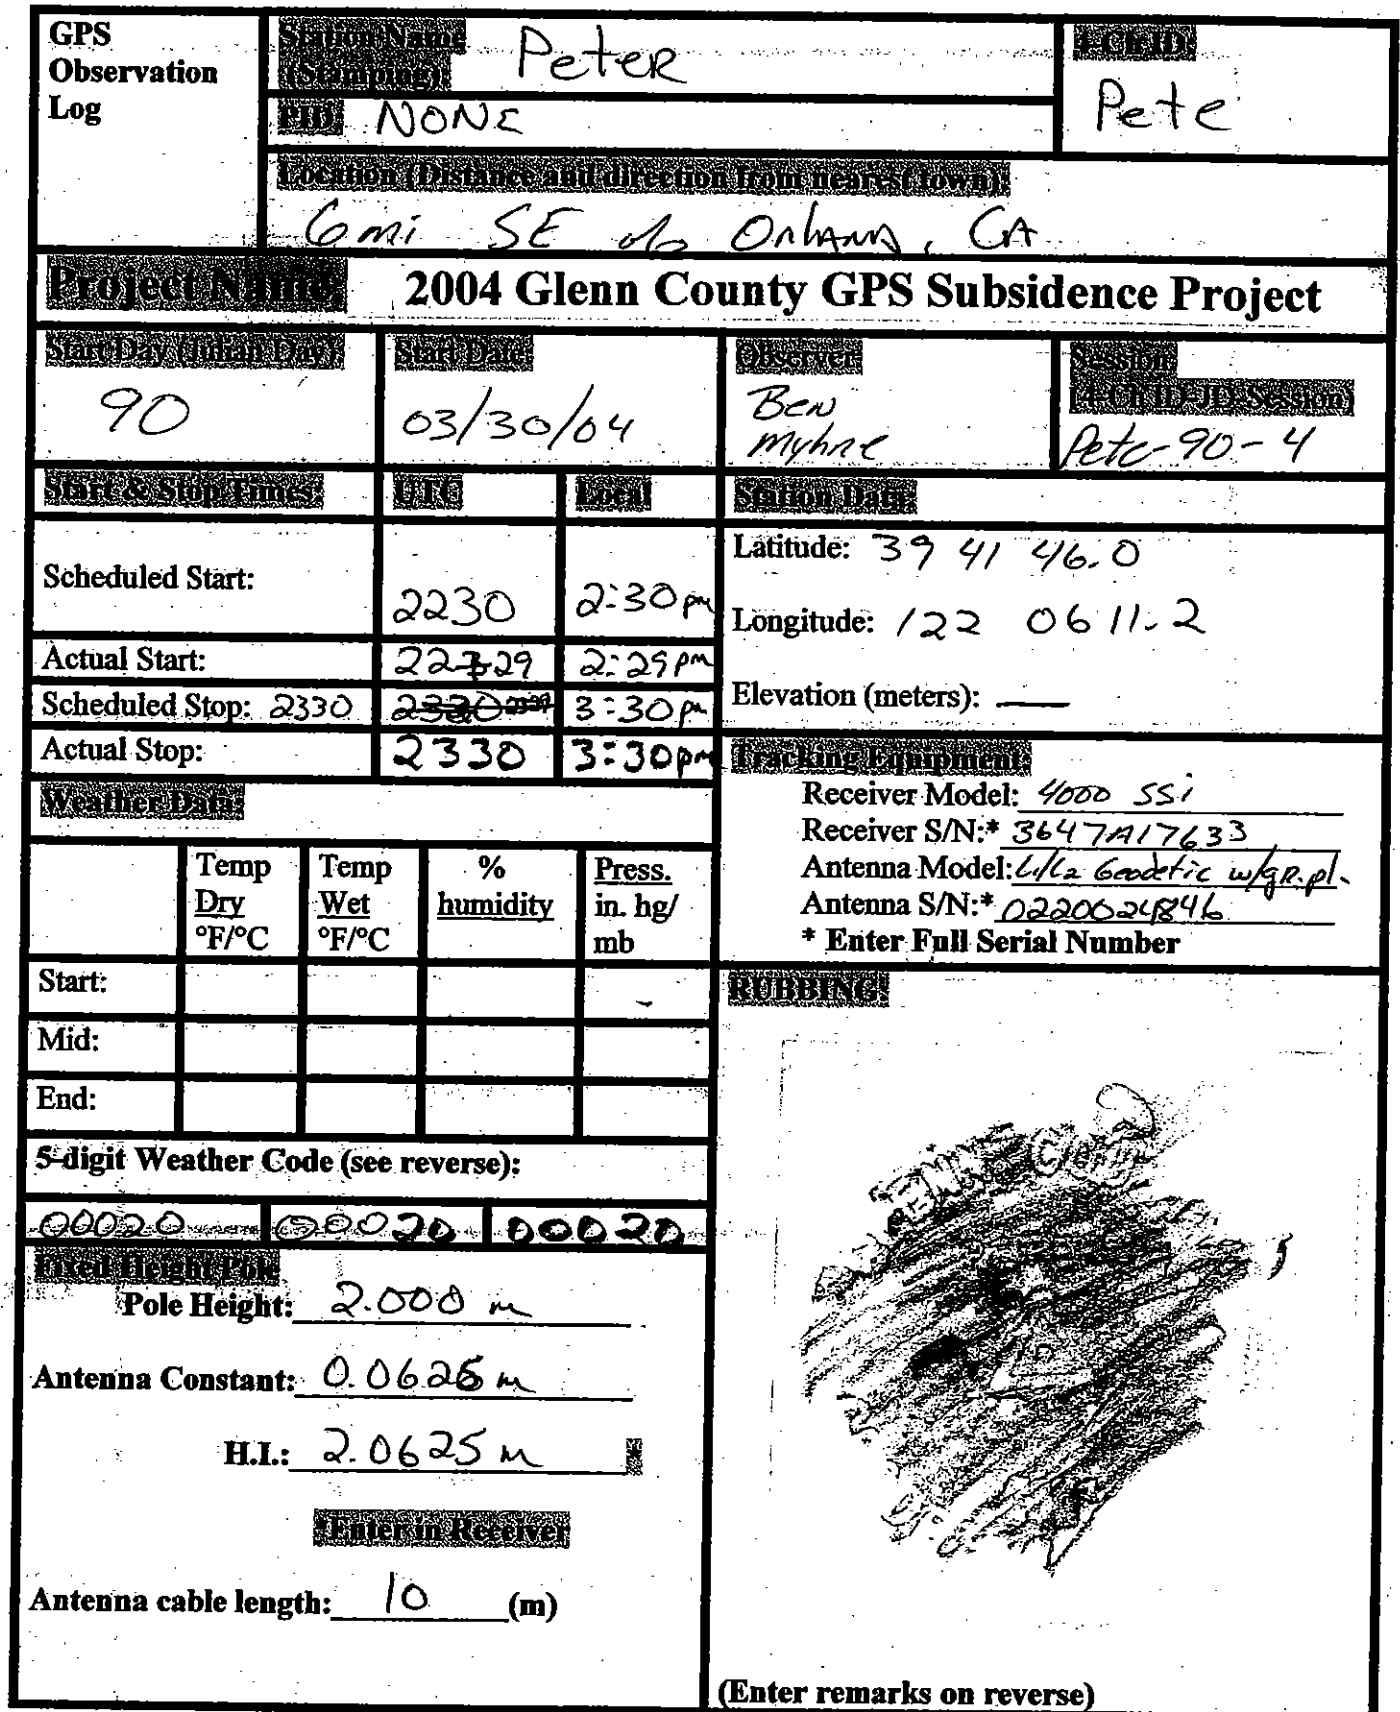 GPS
Observation
Log
Station Name
(Stamping):
Peter
4-Ch ID:
Pete
PID: NONE
Location (Distance and direction from nearest town):
6 mi SE o/o Orland, CA
Project Name: 2004 Glenn County GPS Subsidence Project
Start Day (Julian Day):
90
Start Date:
03/30/04
Observer:
Ben
Myhre
Session
(4-Ch ID-JD-Session)
Pete-90-4
Start & Stop Times: UTC Local
Scheduled Start: 2230 2:30 pm
Actual Start: 2229 2:29 pm
Scheduled Stop: 2330 3:30 pm
Actual Stop: 2330 3:30 pm
Station Data:
Latitude: 39 41 46.0
Longitude: 122 06 11.2
Elevation (meters): —
Tracking Equipment:
Receiver Model: 4000 SSi
Receiver S/N:* 3647A17633
Antenna Model: L1/L2 Geodetic w/gR.pl.
Antenna S/N:* 0220024846
* Enter Full Serial Number
Weather Data:
Temp Dry °F/°C
Temp Wet °F/°C
% humidity
Press. in. hg/ mb
Start:
Mid:
End:
5-digit Weather Code (see reverse):
00020 00020 00020
Fixed Height Pole
Pole Height: 2.000 m
Antenna Constant: 0.0625 m
H.I.: 2.0625 m *
*Enter in Receiver
Antenna cable length: 10 (m)
RUBBING:
(Enter remarks on reverse)